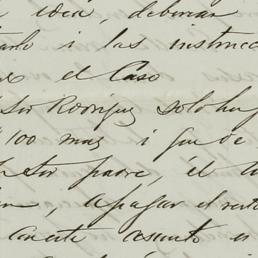 idea, deberan
i las instrucc
el Caso
Sor Rodriguez solo hay
100 mas i que de
Sor padre, él
, a pagar el resto
en este asunto es